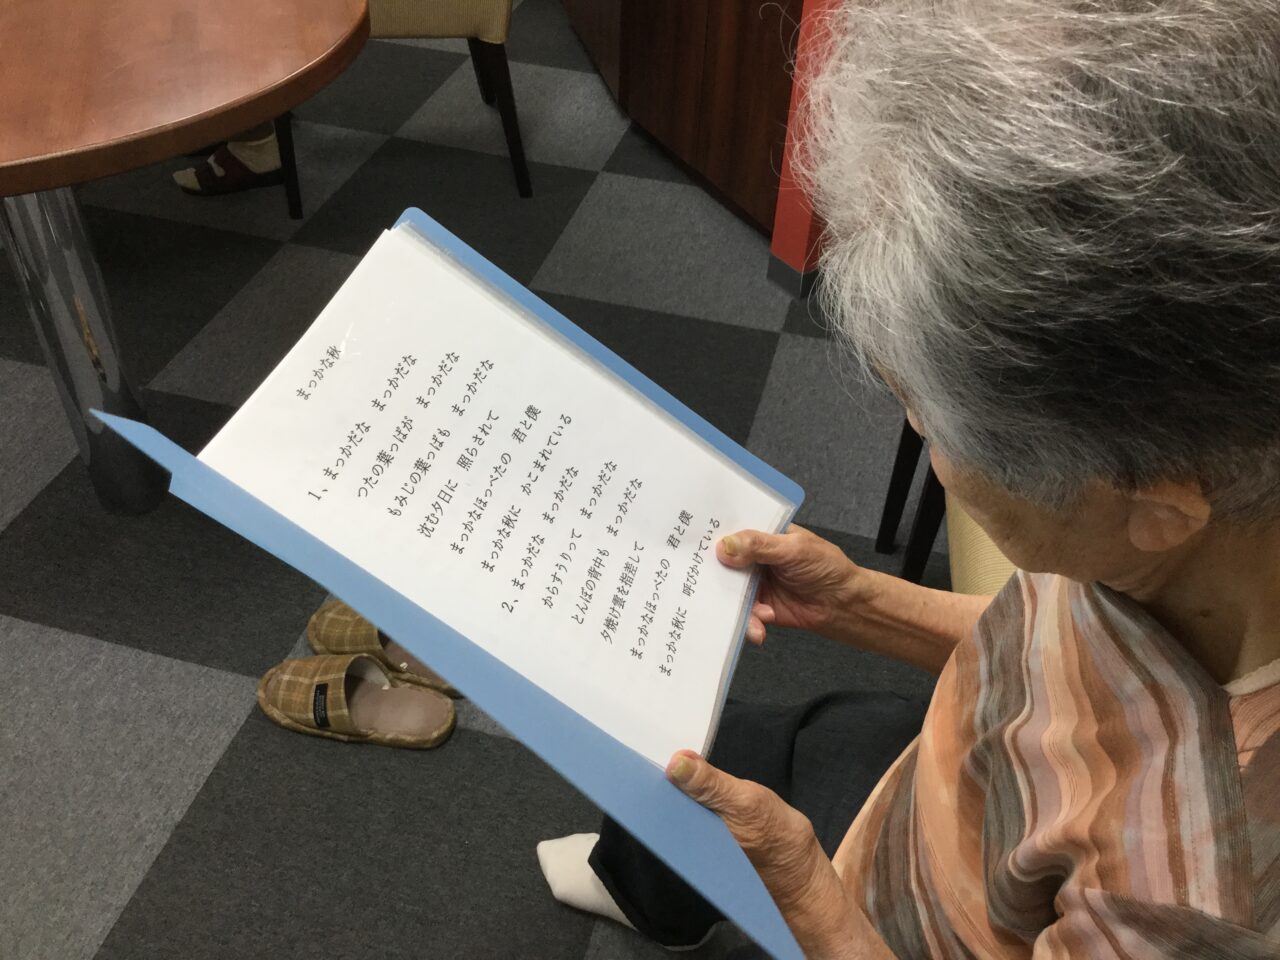 まっかな秋
1、まっかだな　まっかだな
つたの葉っぱが　まっかだな
もみじの葉っぱも　まっかだな
沈む夕日に　照らされて
まっかなほっぺたの　君と僕
まっかな秋に　かこまれている
2、まっかだな　まっかだな
からすうりって　まっかだな
とんぼの背中も　まっかだな
夕焼け雲を指差して
まっかなほっぺたの　君と僕
まっかな秋に　呼びかけている